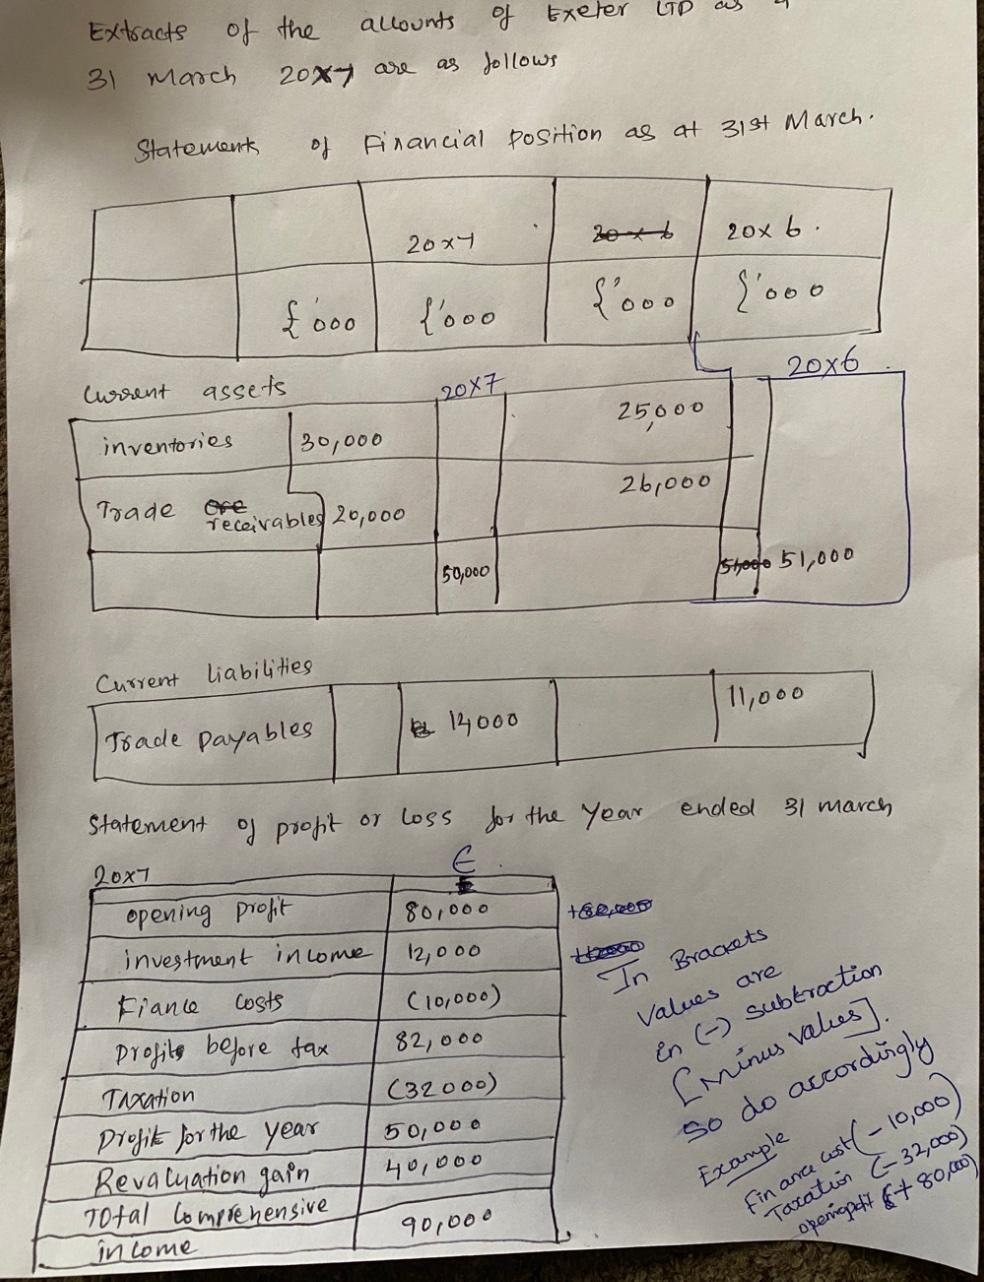 Extracts of the accounts of Exeter LTD as
31 March 20X7 are as follows
Statements of Financial Position as at 31st March.
20x7 20x6 20x6.
£'000 £'000 £'000 £'000
Current assets 20X7 20x6
inventories 30,000 25,000
Trade receivables 20,000 26,000
50,000 51,000 51,000
Current liabilities
Trade payables 14000 11,000
Statement of profit or Loss for the Year ended 31 march
20x7 €
opening profit 80,000 +80,000
investment income 12,000 +12000
Fiance Costs (10,000)
profits before tax 82,000
Taxation (32000)
Profit for the year 50,000
Revaluation gain 40,000
Total Comprehensive
income 90,000
In Brackets
Values are
in (-) subtraction
[Minus values].
So do accordingly
Example
Finance cost (-10,000)
Taxation (-32,000)
openingprofit (+80,000)